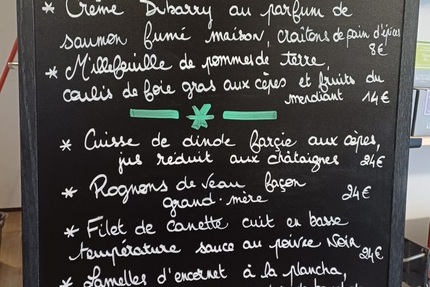 * Crème Dubarry au parfum de
saumon fumé maison, craitons de pain d'épices
8€
* Millefeuille de pommes de terre,
coulis de foie gras aux cèpes et fruits du
mendiant 14€
* Cuisse de dinde farcie aux cèpes,
jus réduit aux châtaignes 24€
* Rognons de veau façon
grand-mère 24€
* Filet de canette cuit en basse
température sauce au poivre Noir 24€
* Lamelles d'encornet à la plancha,